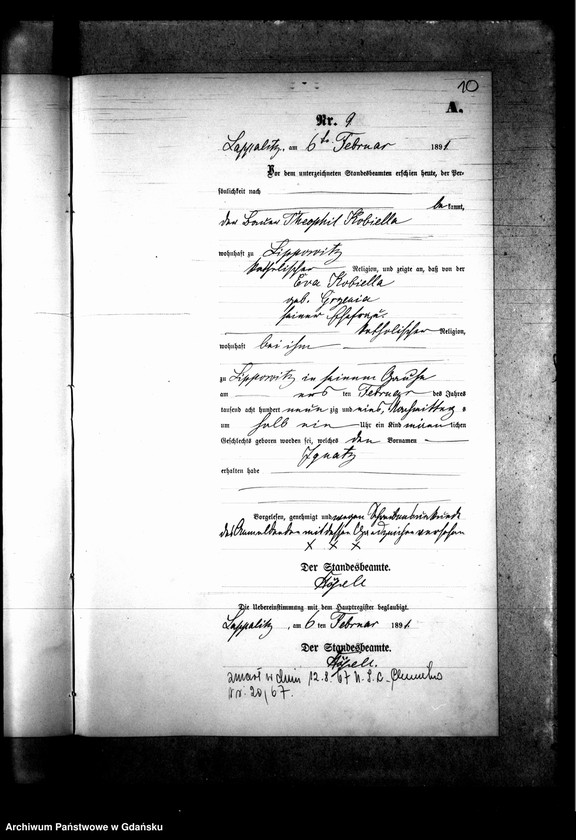 10
A.
Nr. 9
Lappalitz, am 6ten Februar 1891
Vor dem unterzeichneten Standesbeamten erschien heute, der Per-
sönlichkeit nach
bekannt,
der Bauer Theophil Kobiella
wohnhaft zu Lippowitz
katholischer Religion, und zeigte an, daß von der
Eva Kobiella
geb.
seiner Ehefrau
katholischer Religion,
wohnhaft bei ihm
zu Lippowitz in seinem Hause
am ten Februar des Jahres
tausend acht hundert neunzig und eins, Nachmittags
um halb ein Uhr ein Kind männlichen
Geschlechts geboren worden sei, welches den Vornamen
Ignatz
erhalten habe
Vorgelesen, genehmigt und wegen Schreibunkunde
des Anmeldenden mit dessen Handzeichen versehen
x x x
Der Standesbeamte.
Die Uebereinstimmung mit dem Hauptregister beglaubigt.
Lappalitz, am 6 ten Februar 1891.
Der Standesbeamte.
zmarł w dniu 12.8.67
nr. 20/67.
Archiwum Państwowe w Gdańsku